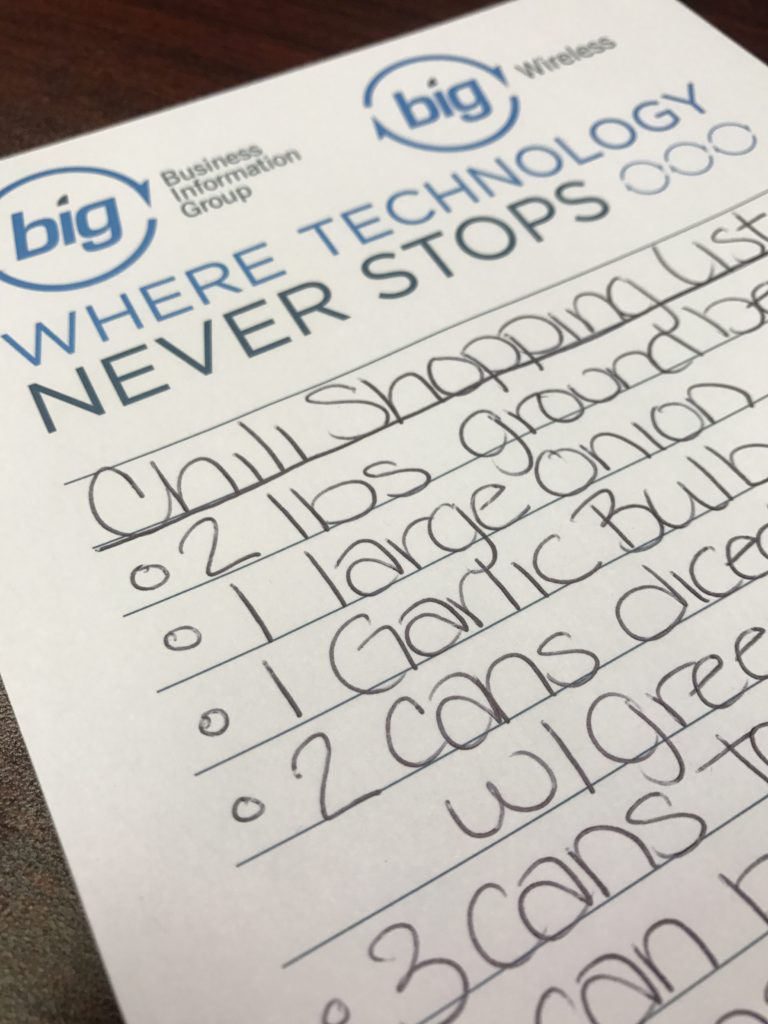 big Business Information Group
big Wireless
WHERE TECHNOLOGY
NEVER STOPS
Chili Shopping List
2 lbs ground be
1 large onion
1 Garlic Bulb
2 cans diced
w/ gree
3 cans to
can